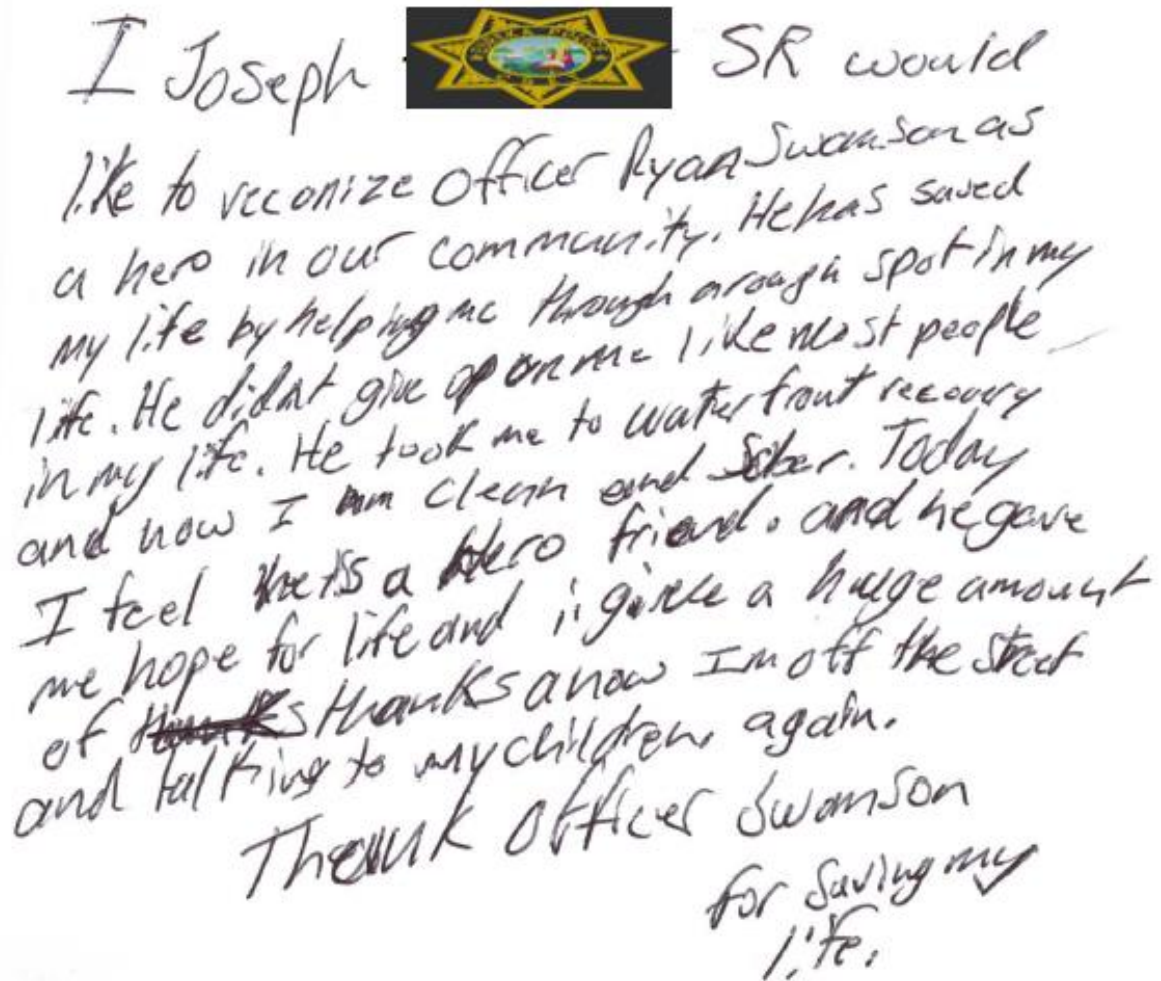 I Joseph SR would
like to reconize Officer Ryan Swanson as
a hero in our community. He has saved
my life by helping me through a rough spot in my
life. He didnt give up on me like most people
in my life. He took me to waterfront recovery
and now I am clean and Sober. Today
I feel he is a Hero friend. and he gave
me hope for life and i give a huge amount
of thanks thanks a now Im off the street
and talking to my children again.
Thank Officer Swanson
for saving my
life.